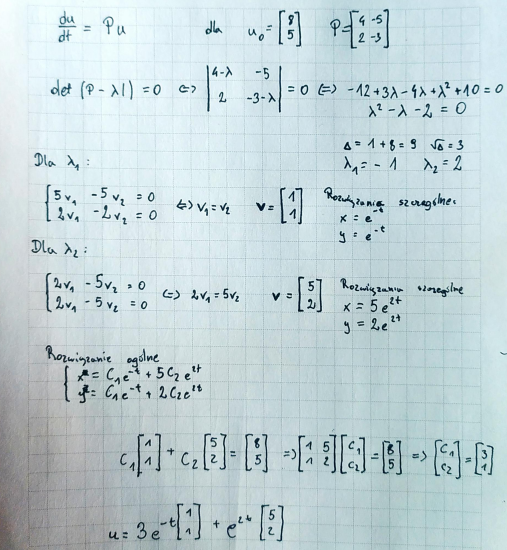 du/dt = Pu dla u₀ = [8 5] P = [4 -5 2 -3]
det (P - λI) = 0 ⇔ |4-λ -5 2 -3-λ| = 0 ⇔ -12 + 3λ - 4λ + λ² + 10 = 0
λ² - λ - 2 = 0
Δ = 1 + 8 = 9 √Δ = 3
λ₁ = -1 λ₂ = 2
Dla λ₁:
{5v₁ - 5v₂ = 0 ⇔ v₁ = v₂ v = [1 1] Rozwiązanie szczególne:
2v₁ - 2v₂ = 0 x = e⁻ᵗ
y = e⁻ᵗ
Dla λ₂:
{2v₁ - 5v₂ = 0 ⇔ 2v₁ = 5v₂ v = [5 2] Rozwiązania szczególne
2v₁ - 5v₂ = 0 x = 5e²ᵗ
y = 2e²ᵗ
Rozwiązanie ogólne
{x = C₁e⁻ᵗ + 5C₂e²ᵗ
y = C₁e⁻ᵗ + 2C₂e²ᵗ
C₁[1 1] + C₂[5 2] = [8 5] ⇒ [1 5 1 2][C₁ C₂] = [8 5] ⇒ [C₁ C₂] = [3 1]
u = 3e⁻ᵗ[1 1] + e²ᵗ[5 2]